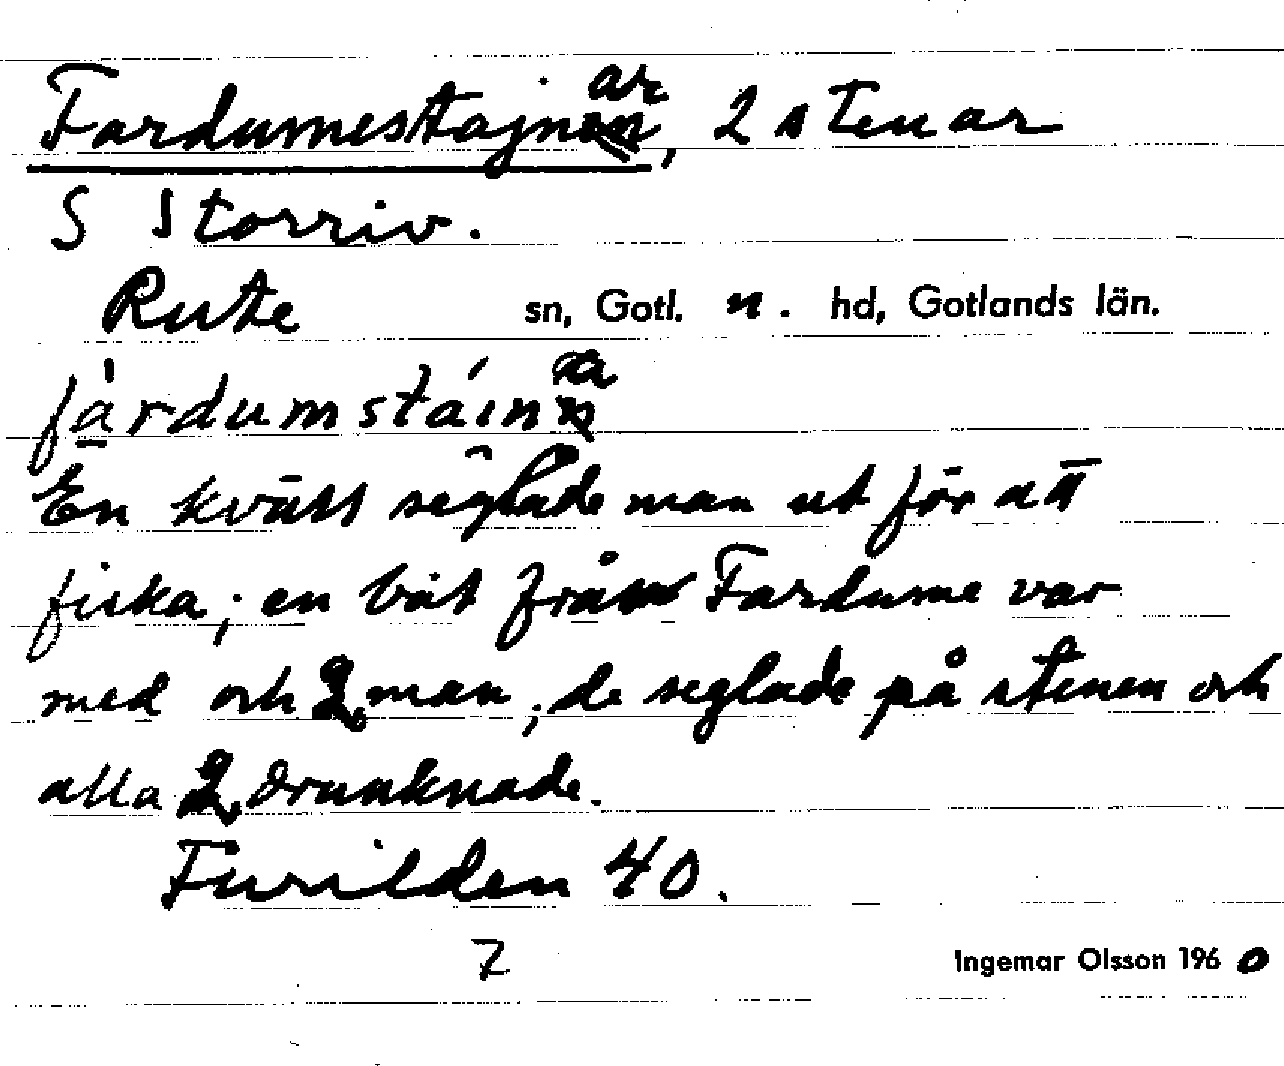 Fardumestajnar, 2 stenar
S Storriv.
Rute sn, Gotl. n. hd, Gotlands län.
fàrdumstáina
En kväll seglade man ut för att
fiska; en båt från Fardume var
med och 2 man, de seglade på stenen och
alla 2 drunknade.
Furilden 40.
7
Ingemar Olsson 1960